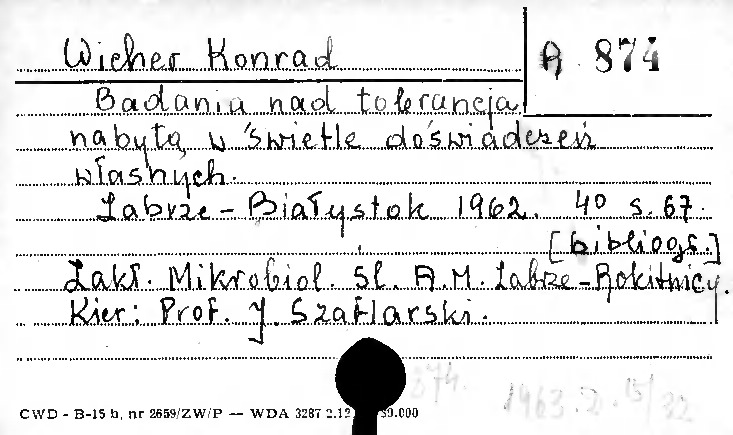 Wicher Konrad
A 874
Badania nad tolerancją
nabytą w świetle doświadczeń
własnych.
Zabrze - Białystok 1962. 4° s. 67.
[bibliogr.]
Zakł. Mikrobiol. Śl. A.M. Zabrze-Rokitnicy.
Kier: Prof. J. Szaflarski.
874.
1963.2.15/32
CWD - B-15 b, nr 2659/ZW/P — WDA 3287 2.12